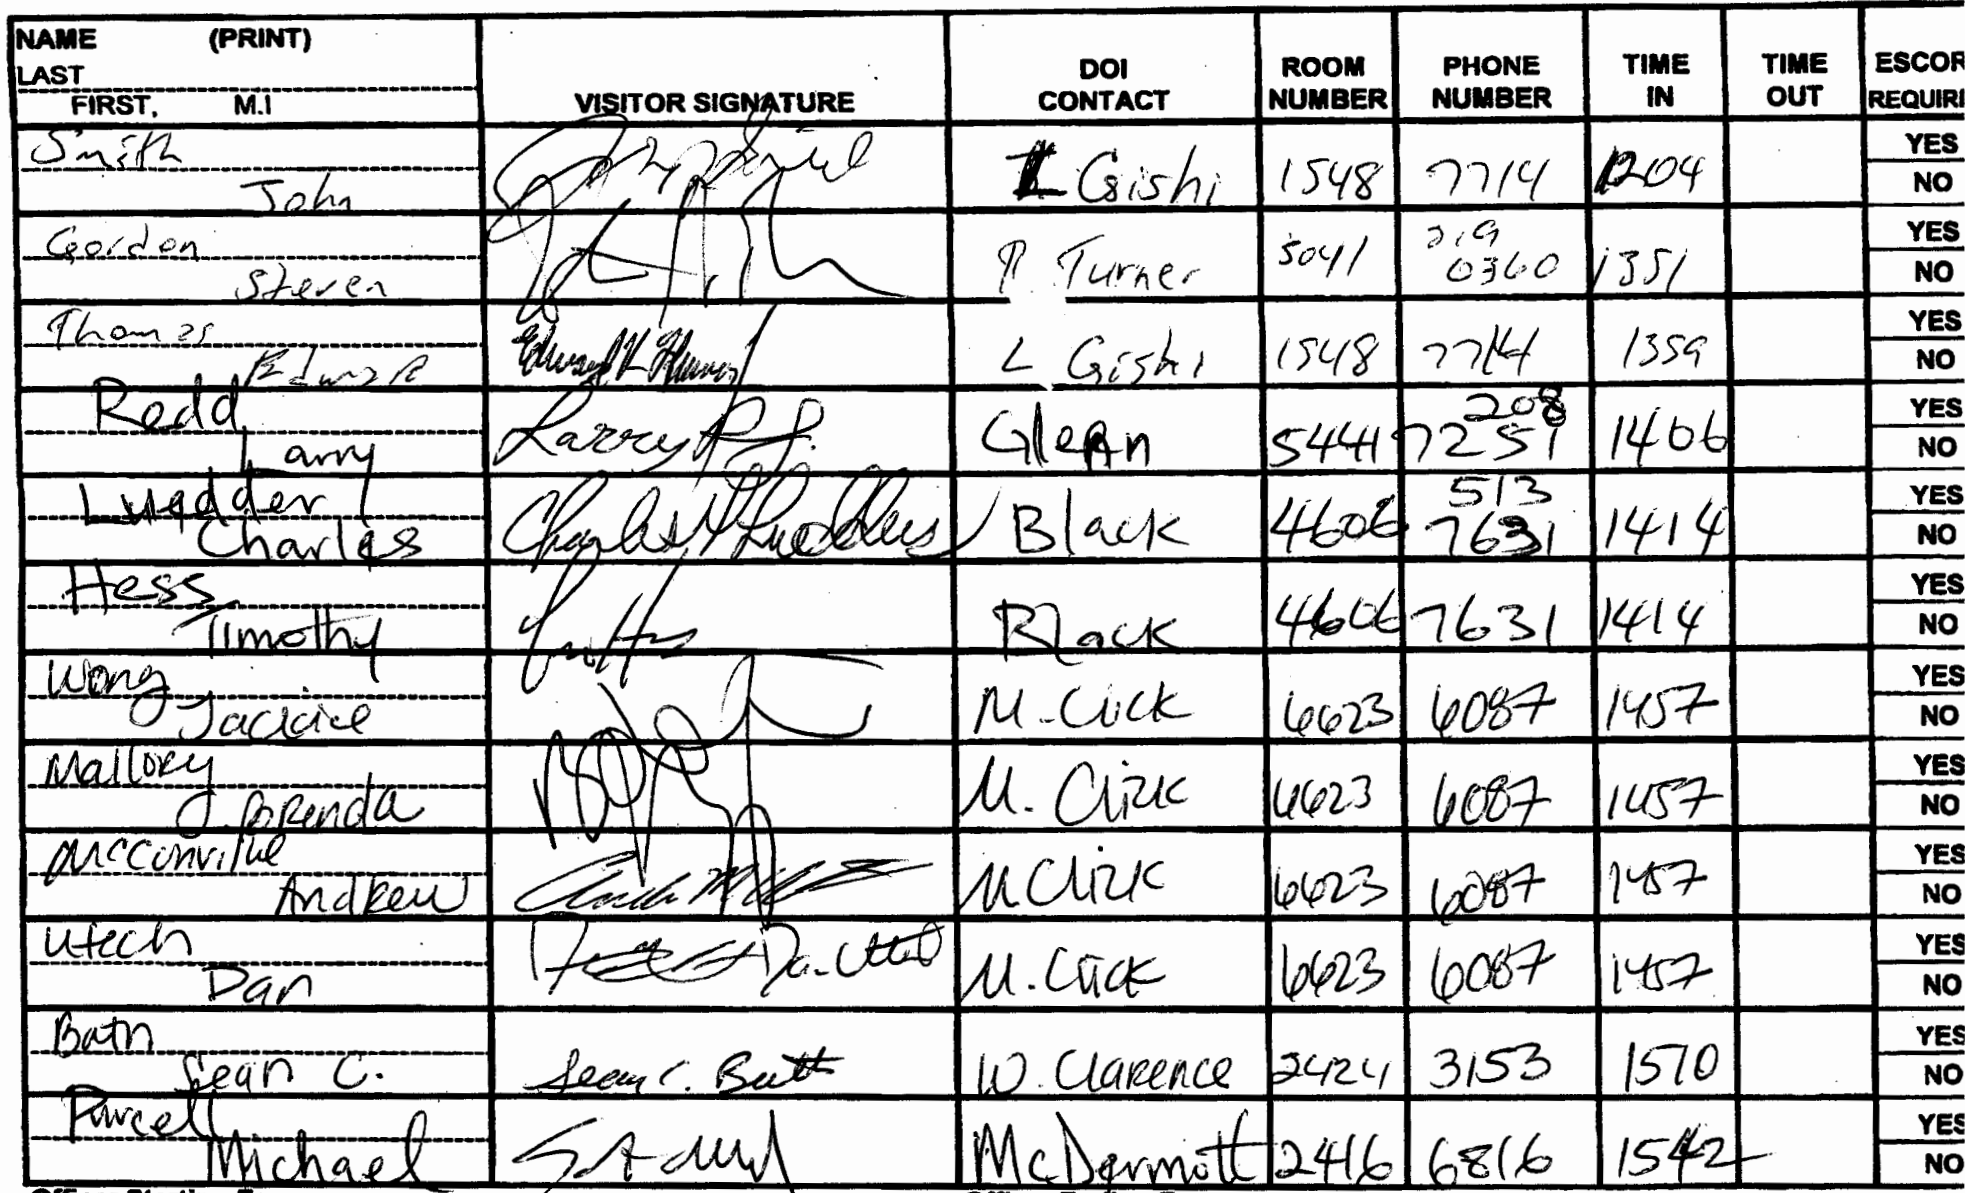 NAME (PRINT)
LAST
FIRST, M.I
VISITOR SIGNATURE
DOI CONTACT
ROOM NUMBER
PHONE NUMBER
TIME IN
TIME OUT
ESCOR
REQUIRI
Smith
John
L Gishi 1548 7714 1204
YES
NO
Gordon
Steven
Turner 5041 219 0360 1351
YES
NO
Thomas
Edward
L Gishi 1548 7714 1359
YES
NO
Redd
Larry
Glenn 5441 208 7251 1406
YES
NO
Luedder
Charles
Black 4606 513 7631 1414
YES
NO
Hess
Timothy
Black 4606 7631 1414
YES
NO
Wong
Jackie
M. Click 6623 6087 1457
YES
NO
Mallory
Brenda
M. Click 6623 6087 1457
YES
NO
McConville
Andrew
M Click 6623 6087 1457
YES
NO
Utech
Dan
M. Click 6623 6087 1457
YES
NO
Bath
Sean C.
Sean C. Bath
W. Clarence 2424 3153 1510
YES
NO
Purcell
Michael
McDermott 2416 6816 1542
YES
NO